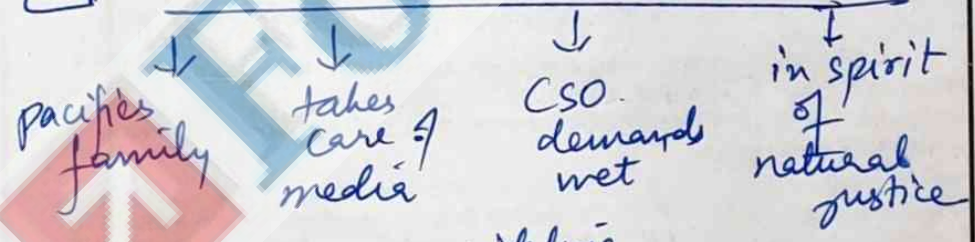 pacifies
family
takes
care of
media
CSO.
demands
met
in spirit
of
natural
justice